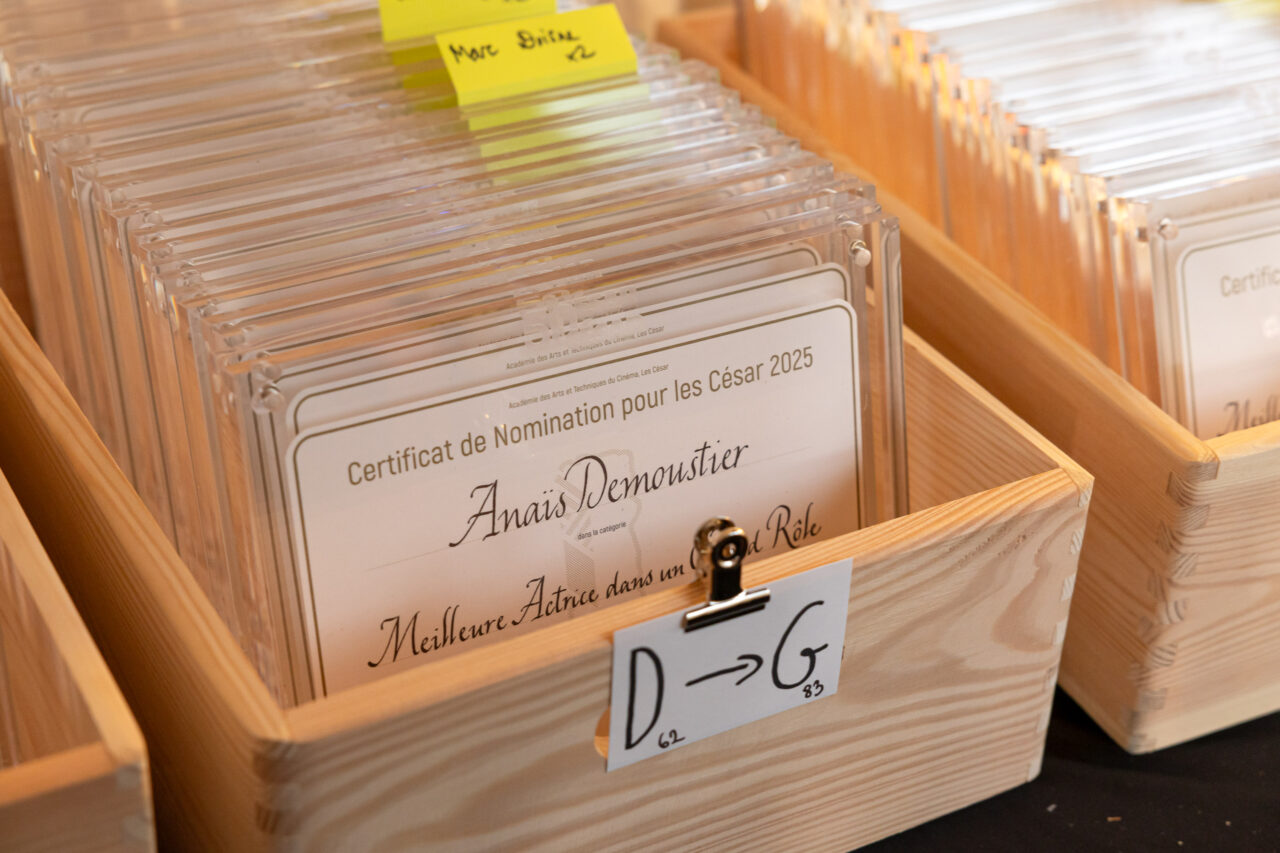 Marc
x2
Académie des Arts et Techniques du Cinéma, Les César
Académie des Arts et Techniques du Cinéma, Les César
Certificat de Nomination pour les César 2025
Anaïs Demoustier
dans la catégorie
Meilleure Actrice dans un d Rôle
D → G
62 83
Certific